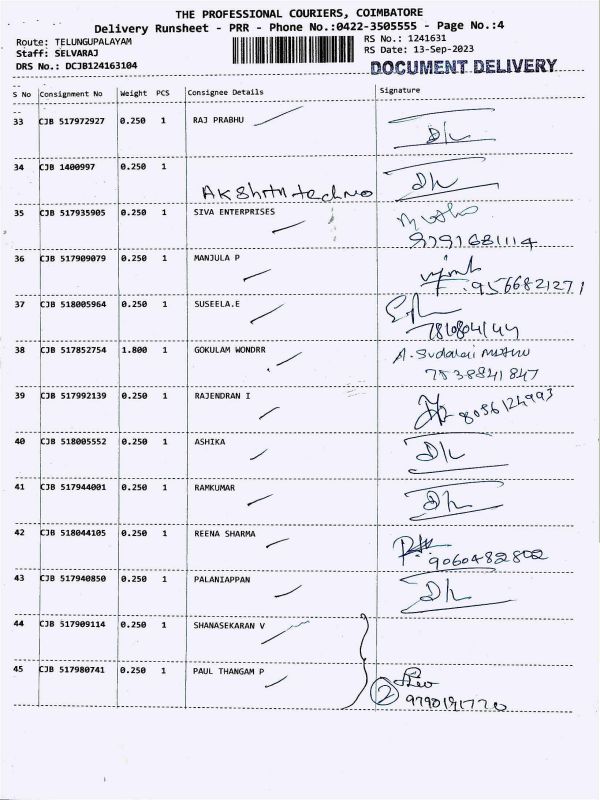 THE PROFESSIONAL COURIERS, COIMBATORE
Delivery Runsheet - PRR - Phone No.:0422-3505555 - Page No.:4
Route: TELUNGUPALAYAM RS No.: 1241631
Staff: SELVARAJ RS Date: 13-Sep-2023
DRS No.: DCJB124163104 DOCUMENT DELIVERY
S No Consignment No Weight PCS Consignee Details Signature
33 CJB 517972927 0.250 1 RAJ PRABHU
34 CJB 1400997 0.250 1
35 CJB 517935905 0.250 1 SIVA ENTERPRISES
8791681114
36 CJB 517909079 0.250 1 MANJULA P
9566821271
37 CJB 518005964 0.250 1 SUSEELA.E
38 CJB 517852754 1.800 1 GOKULAM WONDRR A. Sudalai muthu
7538841847
39 CJB 517992139 0.250 1 RAJENDRAN I 8056124993
40 CJB 518005552 0.250 1 ASHIKA
41 CJB 517944001 0.250 1 RAMKUMAR
42 CJB 518044105 0.250 1 REENA SHARMA
9060482802
43 CJB 517940850 0.250 1 PALANIAPPAN
44 CJB 517909114 0.250 1 SHANASEKARAN V
45 CJB 517980741 0.250 1 PAUL THANGAM P
2